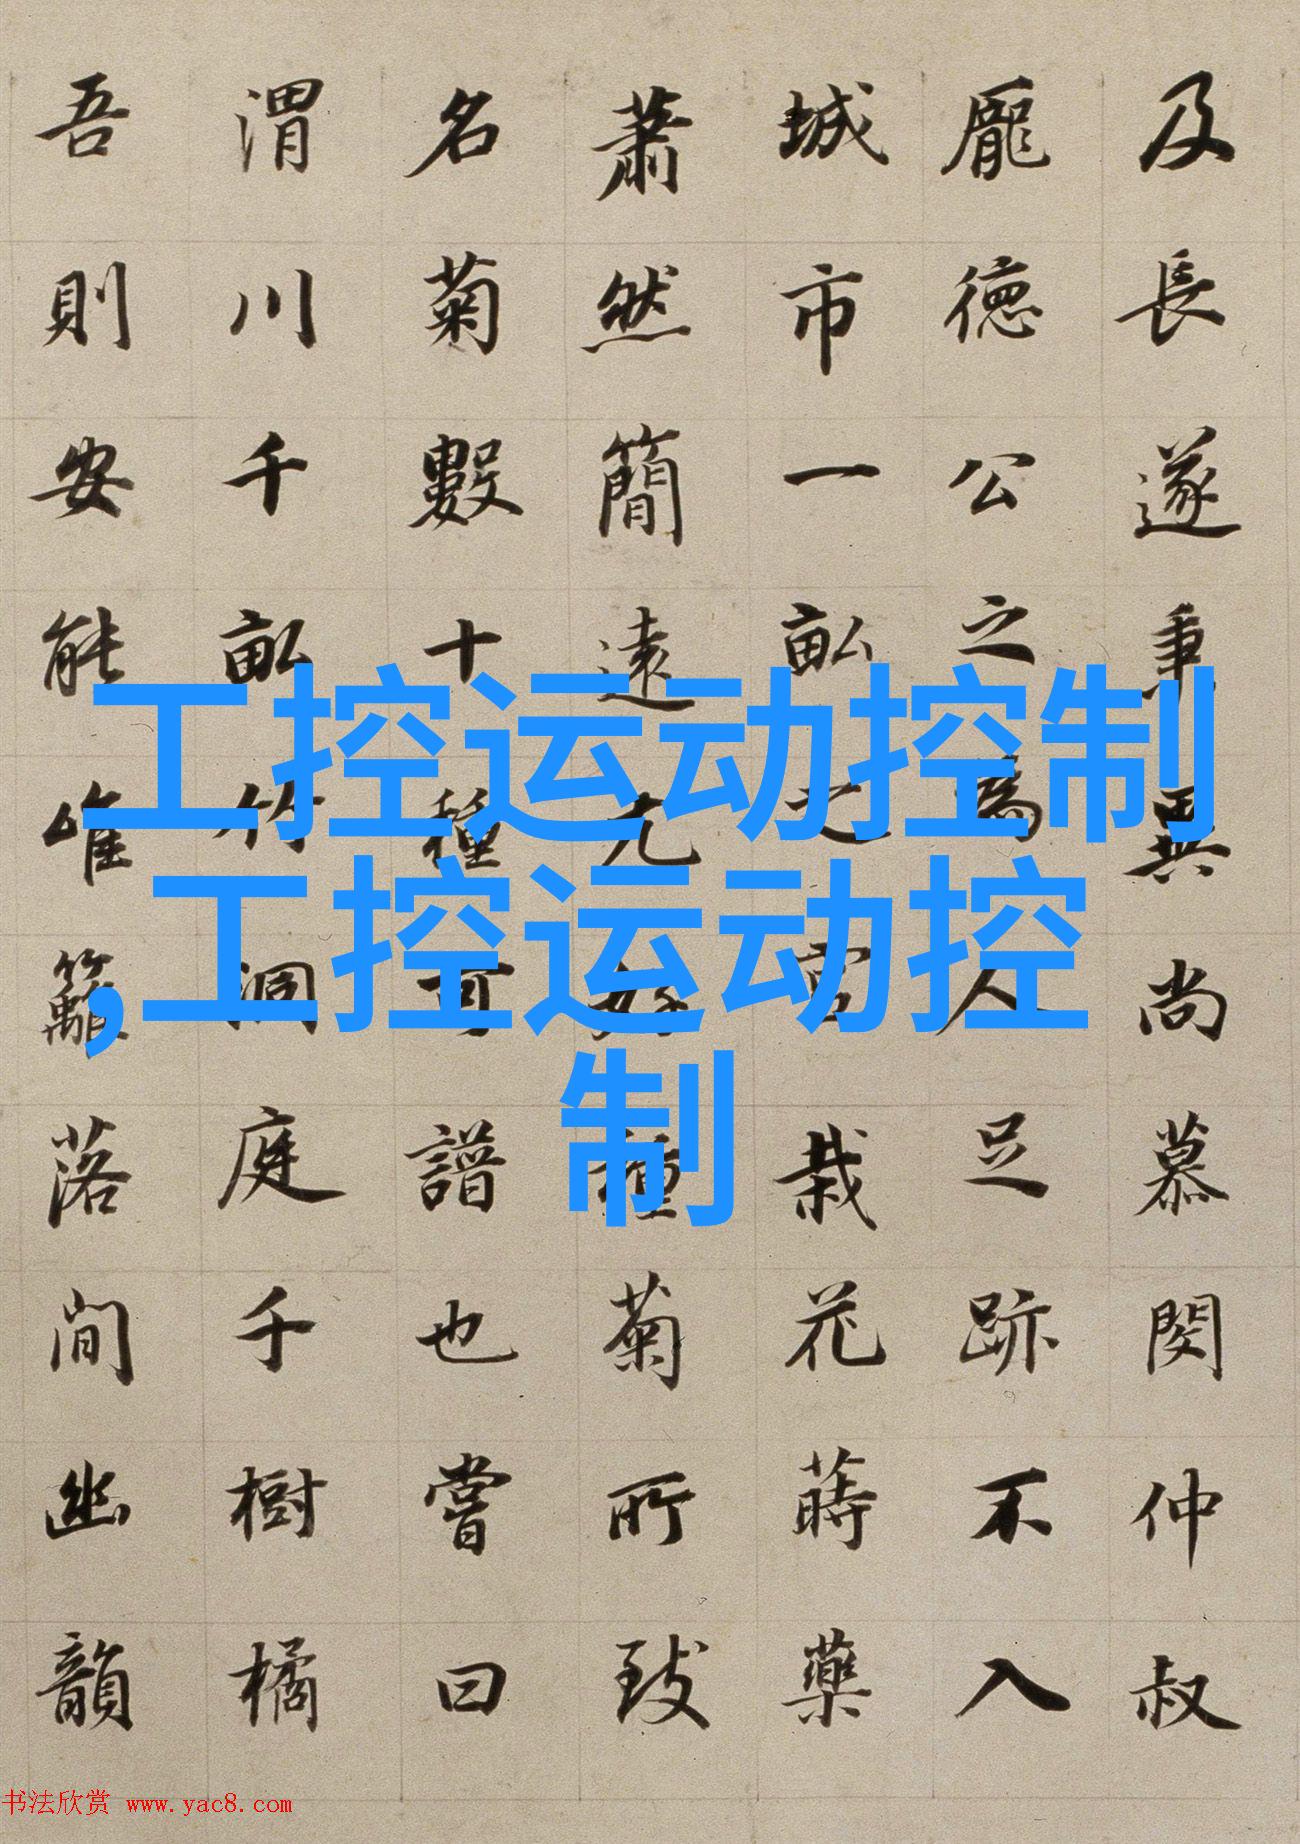 及長遂秉異尚慕閔仲叔
龐德公之為人足跡不入
城市一畝之宮栽花蒔藥
蕭然簡遠尤好種菊所致
名菊數十種可譜也嘗曰
渭川千畝竹洞庭千樹橘
吾則安能唯籬落間幽韻
工控运动控制
,工控运动控
制
书法欣赏 www.yac8.com